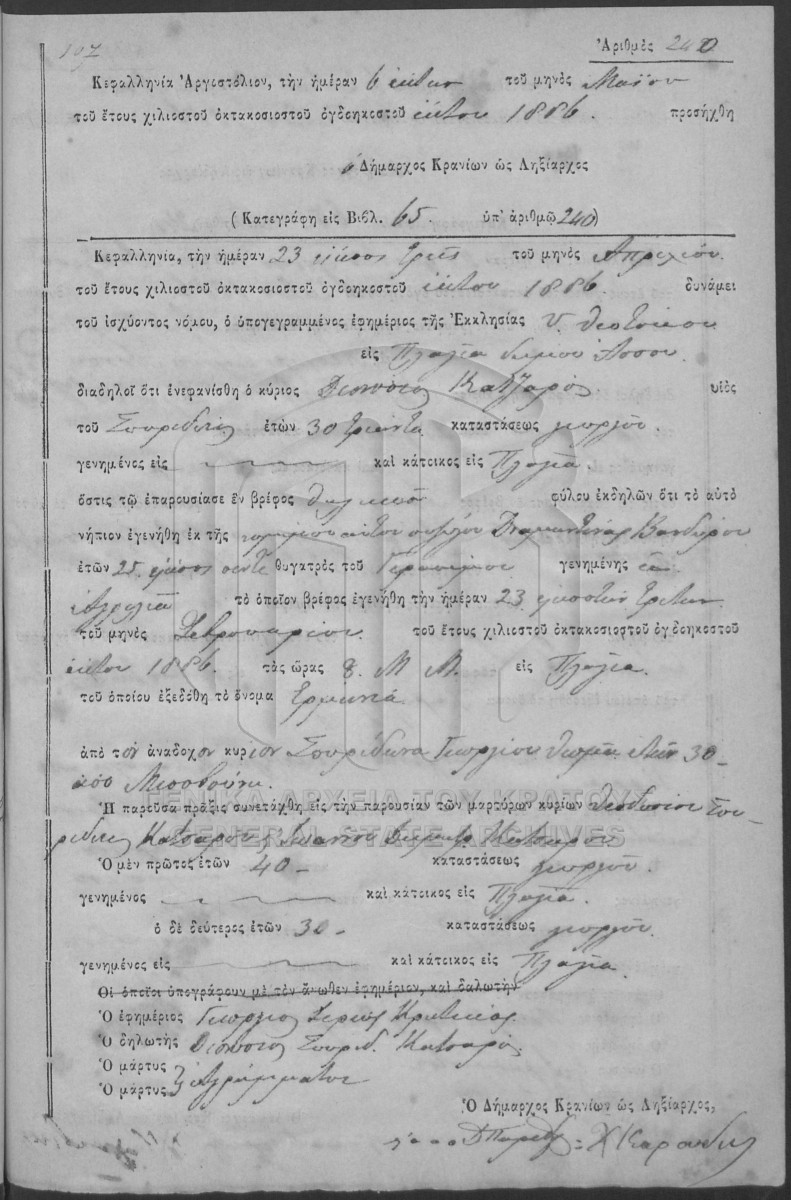 107
Ἀριθμὸς 240
Κεφαλληνία Ἀργοστόλιον, τὴν ἡμέραν 6 ἕκτην τοῦ μηνὸς Μαΐου
τοῦ ἔτους χιλιοστοῦ ὀκτακοσιοστοῦ ὀγδοηκοστοῦ ἕκτου 1886. προσήχθη
ὁ Δήμαρχος Κρανίων ὡς Ληξίαρχος
(Κατεγράφη εἰς Βιβλ. 65. ὑπ' ἀριθμῷ 240)
Κεφαλληνία, τὴν ἡμέραν 23 εἴκοσι τρεῖς τοῦ μηνὸς Ἀπριλίου
τοῦ ἔτους χιλιοστοῦ ὀκτακοσιοστοῦ ὀγδοηκοστοῦ ἕκτου 1886 δυνάμει
τοῦ ἰσχύοντος νόμου, ὁ ὑπογεγραμμένος ἐφημέριος τῆς Ἐκκλησίας Υ. Θεοτόκου
εἰς Πλαγιὰ δήμου Ἄσσου.
διαδηλοῖ ὅτι ἐνεφανίσθη ὁ κύριος Διονύσιος Κατζαρὸς υἱὸς
τοῦ Σπυρίδωνος ἐτῶν 30 τριάντα καταστάσεως γεωργοῦ.
γενημένος εἰς καὶ κάτοικος εἰς Πλαγιὰ.
ὅστις τῷ ἐπαρουσίασε ἓν βρέφος θηλυκοῦ φύλου ἐκδηλῶν ὅτι τὸ αὐτὸ
νήπιον ἐγενήθη ἐκ τῆς νομίμου αὐτοῦ συζύγου Διαμαντίνας Βανδώρου
ἐτῶν 25 εἴκοσι πέντε θυγατρὸς τοῦ Γερασίμου γενημένης
τὸ ὁποῖον βρέφος ἐγενήθη τὴν ἡμέραν 23 εἰκοστὴν τρίτην
τοῦ μηνὸς Φεβρουαρίου τοῦ ἔτους χιλιοστοῦ ὀκτακοσιοστοῦ ὀγδοηκοστοῦ
ἕκτου 1886 τὰς ὥρας 8. Μ Μ. εἰς Πλαγιὰ.
τοῦ ὁποίου ἐξεδόθη τὸ ὄνομα Ἐρμιόνα
ἀπὸ τὸν ἀνάδοχον κύριον Σπυρίδωνα Γεωργίου Θωμᾶ ἐτῶν 30
ἀπὸ
ΓΕΝΙΚΑ ΑΡΧΕΙΑ ΤΟΥ ΚΡΑΤΟΥΣ
Ἡ παροῦσα πρᾶξις συνετάχθη εἰς τὴν παρουσίαν τῶν μαρτύρων κυρίων Θεοδοσίου Σπυ-
ρίδωνος Κατσαροῦ Ἰωάννου Κατσαροῦ
GENERAL STATE ARCHIVES
Ὁ μὲν πρῶτος ἐτῶν 40 καταστάσεως γεωργοῦ.
γενημένος καὶ κάτοικος εἰς Πλαγιὰ.
ὁ δὲ δεύτερος ἐτῶν 30 καταστάσεως γεωργοῦ.
γενημένος εἰς καὶ κάτοικος εἰς Πλαγιὰ.
Οἱ ὁποῖοι ὑπογράφουν μὲ τὸν ἄνωθεν ἐφημέριον, καὶ δαλωτήν
Ὁ ἐφημέριος Γεώργιος Ἱερεὺς Κρητικὸς
Ὁ δηλωτὴς Διονύσιος Σπυριδ. Κατσαρός.
Ὁ μάρτυς
Ὁ μάρτυς Ἀγράμματοι
Ὁ Δήμαρχος Κρανίων ὡς Ληξίαρχος,